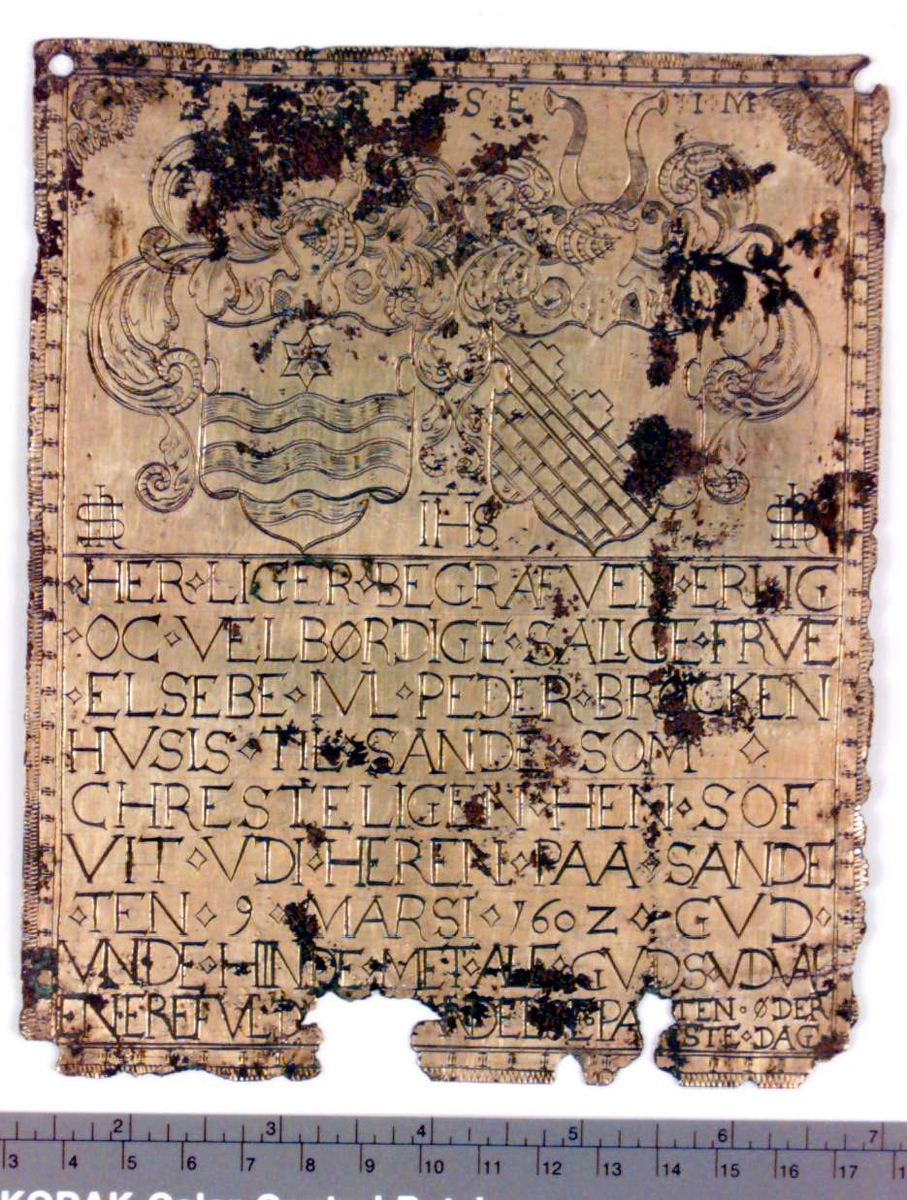 S E I M
IHS
HER LIGER BEGRAFVEN ERLIG
OC VELBØRDIGE SALIGE FRVE
ELSEBE IVL PEDER BROCKEN
HVSIS TIL SANDE SOM
CHRESTELIGEN HEN SOF
VIT VDI HEREN PAA SANDE
TEN 9 MARSI 1602 GVD
VNDE HINDE MET ALE GVDS VDVAL
PAA TEN ØDER
STE DAG
2 3 4 5 6 7
3 4 5 6 7 8 9 10 11 12 13 14 15 16 17